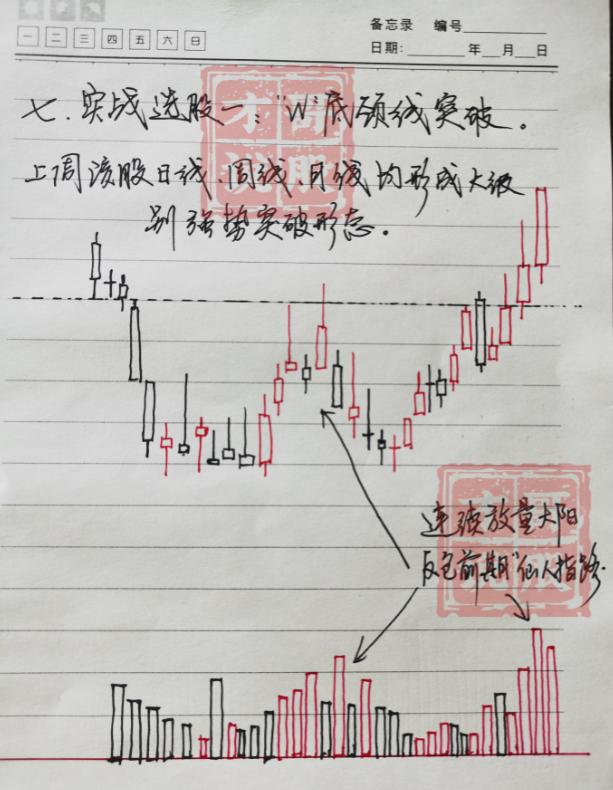 备忘录 编号
一 二 三 四 五 六 日
日期: 年 月 日
七.实战选股一:"W"底颈线突破。
上周该股日线、周线、月线均形成大级
别强势突破形态。
连续放量大阳
反包前期"仙人指路.